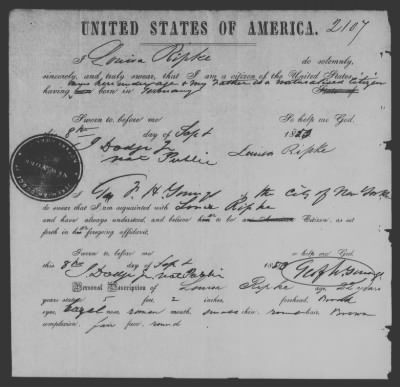 UNITED STATES OF AMERICA. 2107
I Louisa Ripke do solemnly,
sincerely, and truly swear, that I am a citizen of the United States
am here under age & my Father is a naturalised Citizen
having been born in Germany
Sworn to before me So help me God.
this 8th day of Sept 1850
J Dodge Jr Louisa Ripke
Not Public
I Geo F. H. of the City of New York
do swear that I am acquainted with Louisa Ripke
and have always understood, and believe her to be Citizen, as set
forth in her foregoing affidavit.
Sworn to before me So help me God.
this 8th day of Sept 1850
J Dodge Jr Not Public
Personal Description of Louisa Ripke age 22 years
years stature 5 feet 2 inches, forehead, Broad
eyes, hazel nose roman mouth, small chin, round hair, Brown
complexion, fair face, round